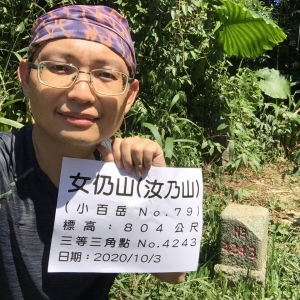 女仍山(汝乃山)
(小百岳 No.79)
標高：804公尺
三等三角點 No.4243
日期：2020/10/3